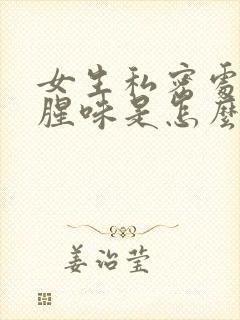 女生私密處
腥味是怎麼
姜治莹